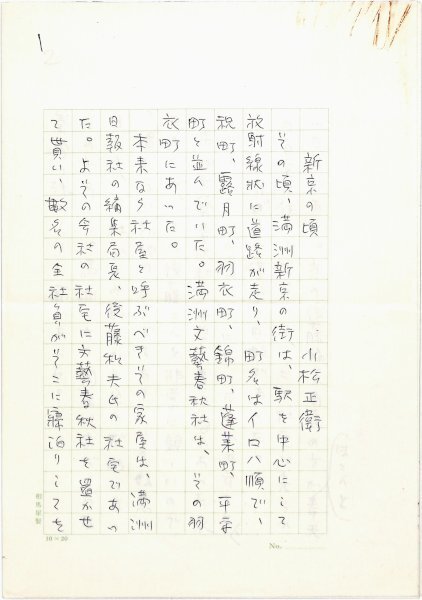 1
新京の頃
小松正衛
その頃、満洲新京の街は、駅を中心にして
放射線状に道路が走り、町名はイロハ順で、
祝町、露月町、羽衣町、錦町、蓬莱町、平安
町と並んでいた。満洲文藝春秋社は、その羽
衣町にあった。
本来なら社屋と呼ぶべきその家屋は、満洲
日報社の編集局長、後藤和夫氏の社宅であっ
た。よその会社の社宅に文藝春秋社を置かせ
て貰い、数名の全社員がそこに寝泊りしてを
相馬屋製
10×20
No.